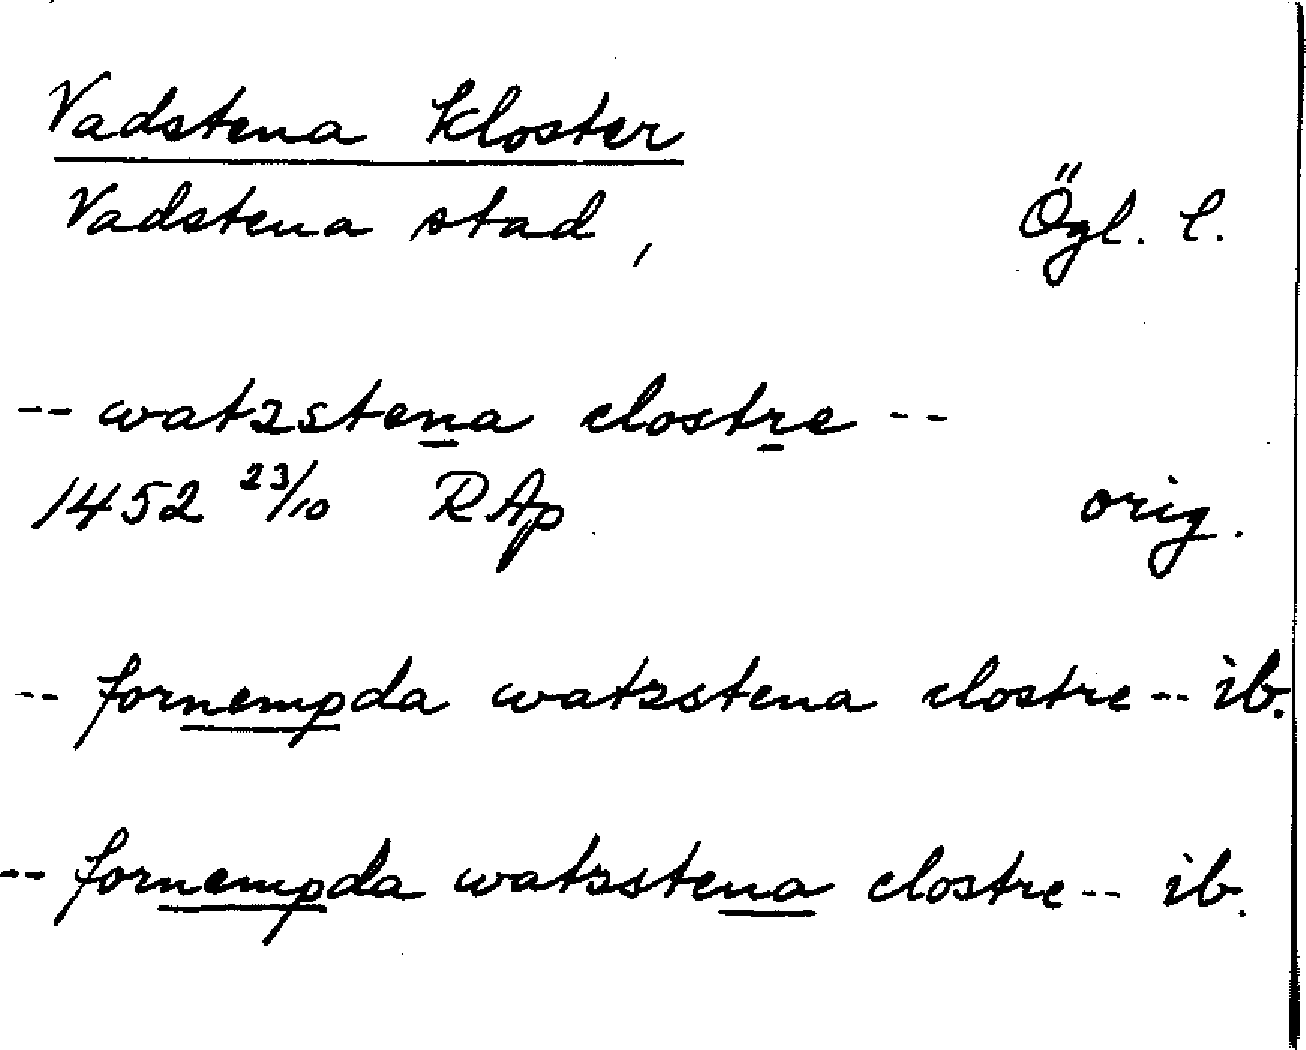 Vadstena kloster
Vadstena stad, Ögl. l.
-- watzstena clostre --
1452 23/10 RAp orig.
-- fornempda watzstena clostre -- ib.
-- fornempda watzstena clostre -- ib.